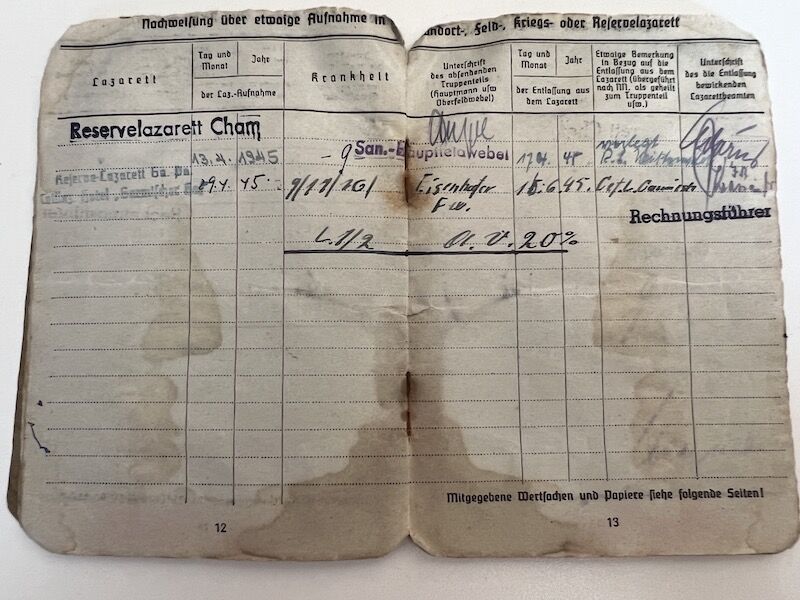 Nachweisung über etwaige Aufnahme in
ndort-, Feld-, Kriegs- oder Reservelazarett
Lazarett
Tag und Monat
Jahr
der Laz.-Aufnahme
Krankheit
Unterschrift
des absendenden
Truppenteils
(Hauptmann usw
Oberfeldwebel)
Tag und Monat
Jahr
der Entlassung aus
dem Lazarett
Etwaige Bemerkung
in Bezug auf die
Entlassung aus dem
Lazarett (übergeführt
nach NN, als geheilt
zum Truppenteil
usw.)
Unterschrift
des die Entlassung
bewirkenden
Lazarettbeamten
Reservelazarett Cham
13.4. 1945
- 9
San.-Hauptfeldwebel
17.4. 45
verlegt
Reserve-Lazarett Ga. Pa.
29.4. 45.
9/11/26/
Eisenhofer
Fw.
15.6.45.
Rechnungsführer
L.1/2 a. v. 20%
Mitgegebene Wertsachen und Papiere siehe folgende Seiten!
12
13